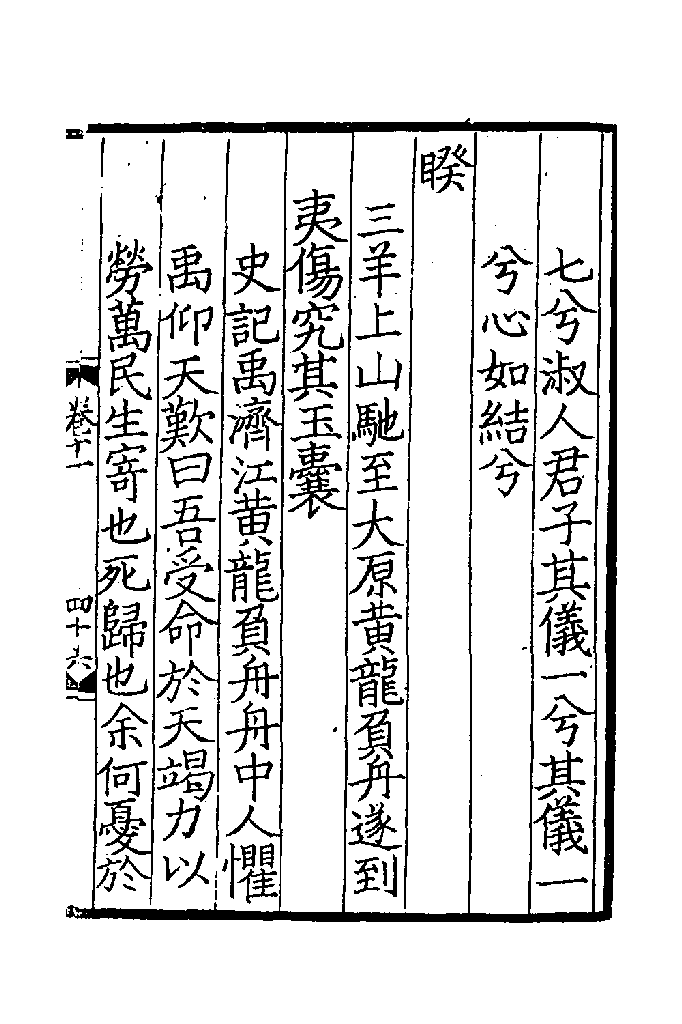 七兮淑人君子其儀一兮其儀一
兮心如結兮
睽
三羊上山馳至大原黄龍負舟遂到
夷傷究其玉囊
史記禹濟江黄龍負舟舟中人懼
禹仰天歎曰吾受命於天竭力以
勞萬民生寄也死歸也余何憂於
卷十一
四十六